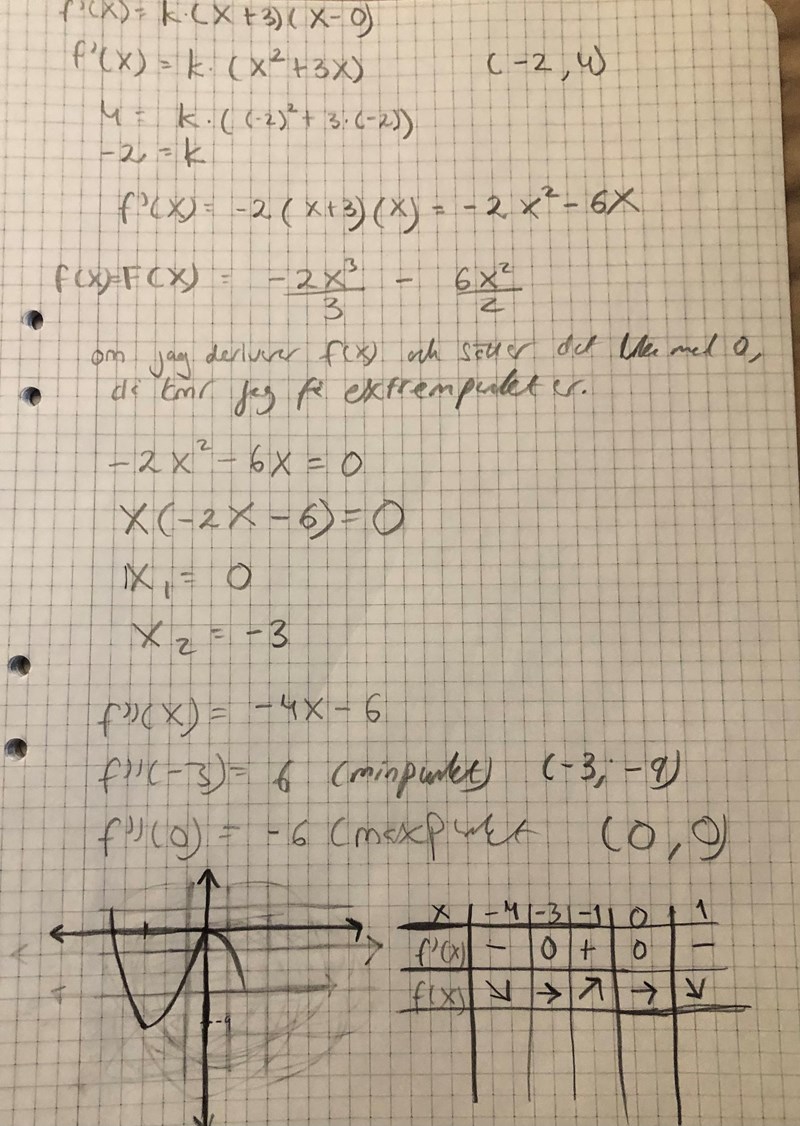 f'(x) = k·(x+3)(x-0)
f'(x) = k·(x²+3x) (-2, 4)
4 = k·((-2)²+3·(-2))
-2 = k
f'(x) = -2(x+3)(x) = -2x²-6x
f(x)=F(x) = -2x³/3 - 6x²/2
om jag deriverar f(x) och sätter det lika med 0,
då kmr jag få extrempunkter.
-2x²-6x = 0
x(-2x-6) = 0
x₁ = 0
x₂ = -3
f''(x) = -4x-6
f''(-3) = 6 (minpunkt) (-3, -9)
f''(0) = -6 (maxpunkt (0, 0)
x -4 -3 -1 0 1
f'(x) - 0 + 0 -
f(x) ↘ → ↗ → ↘
-9